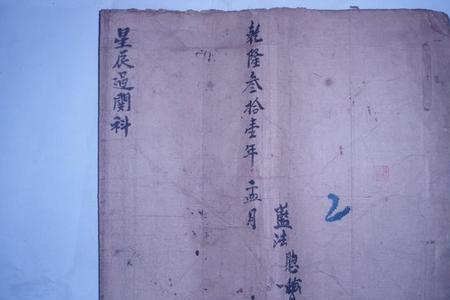 星辰過関科
乾隆叁拾壹年孟月
藍法聰
2